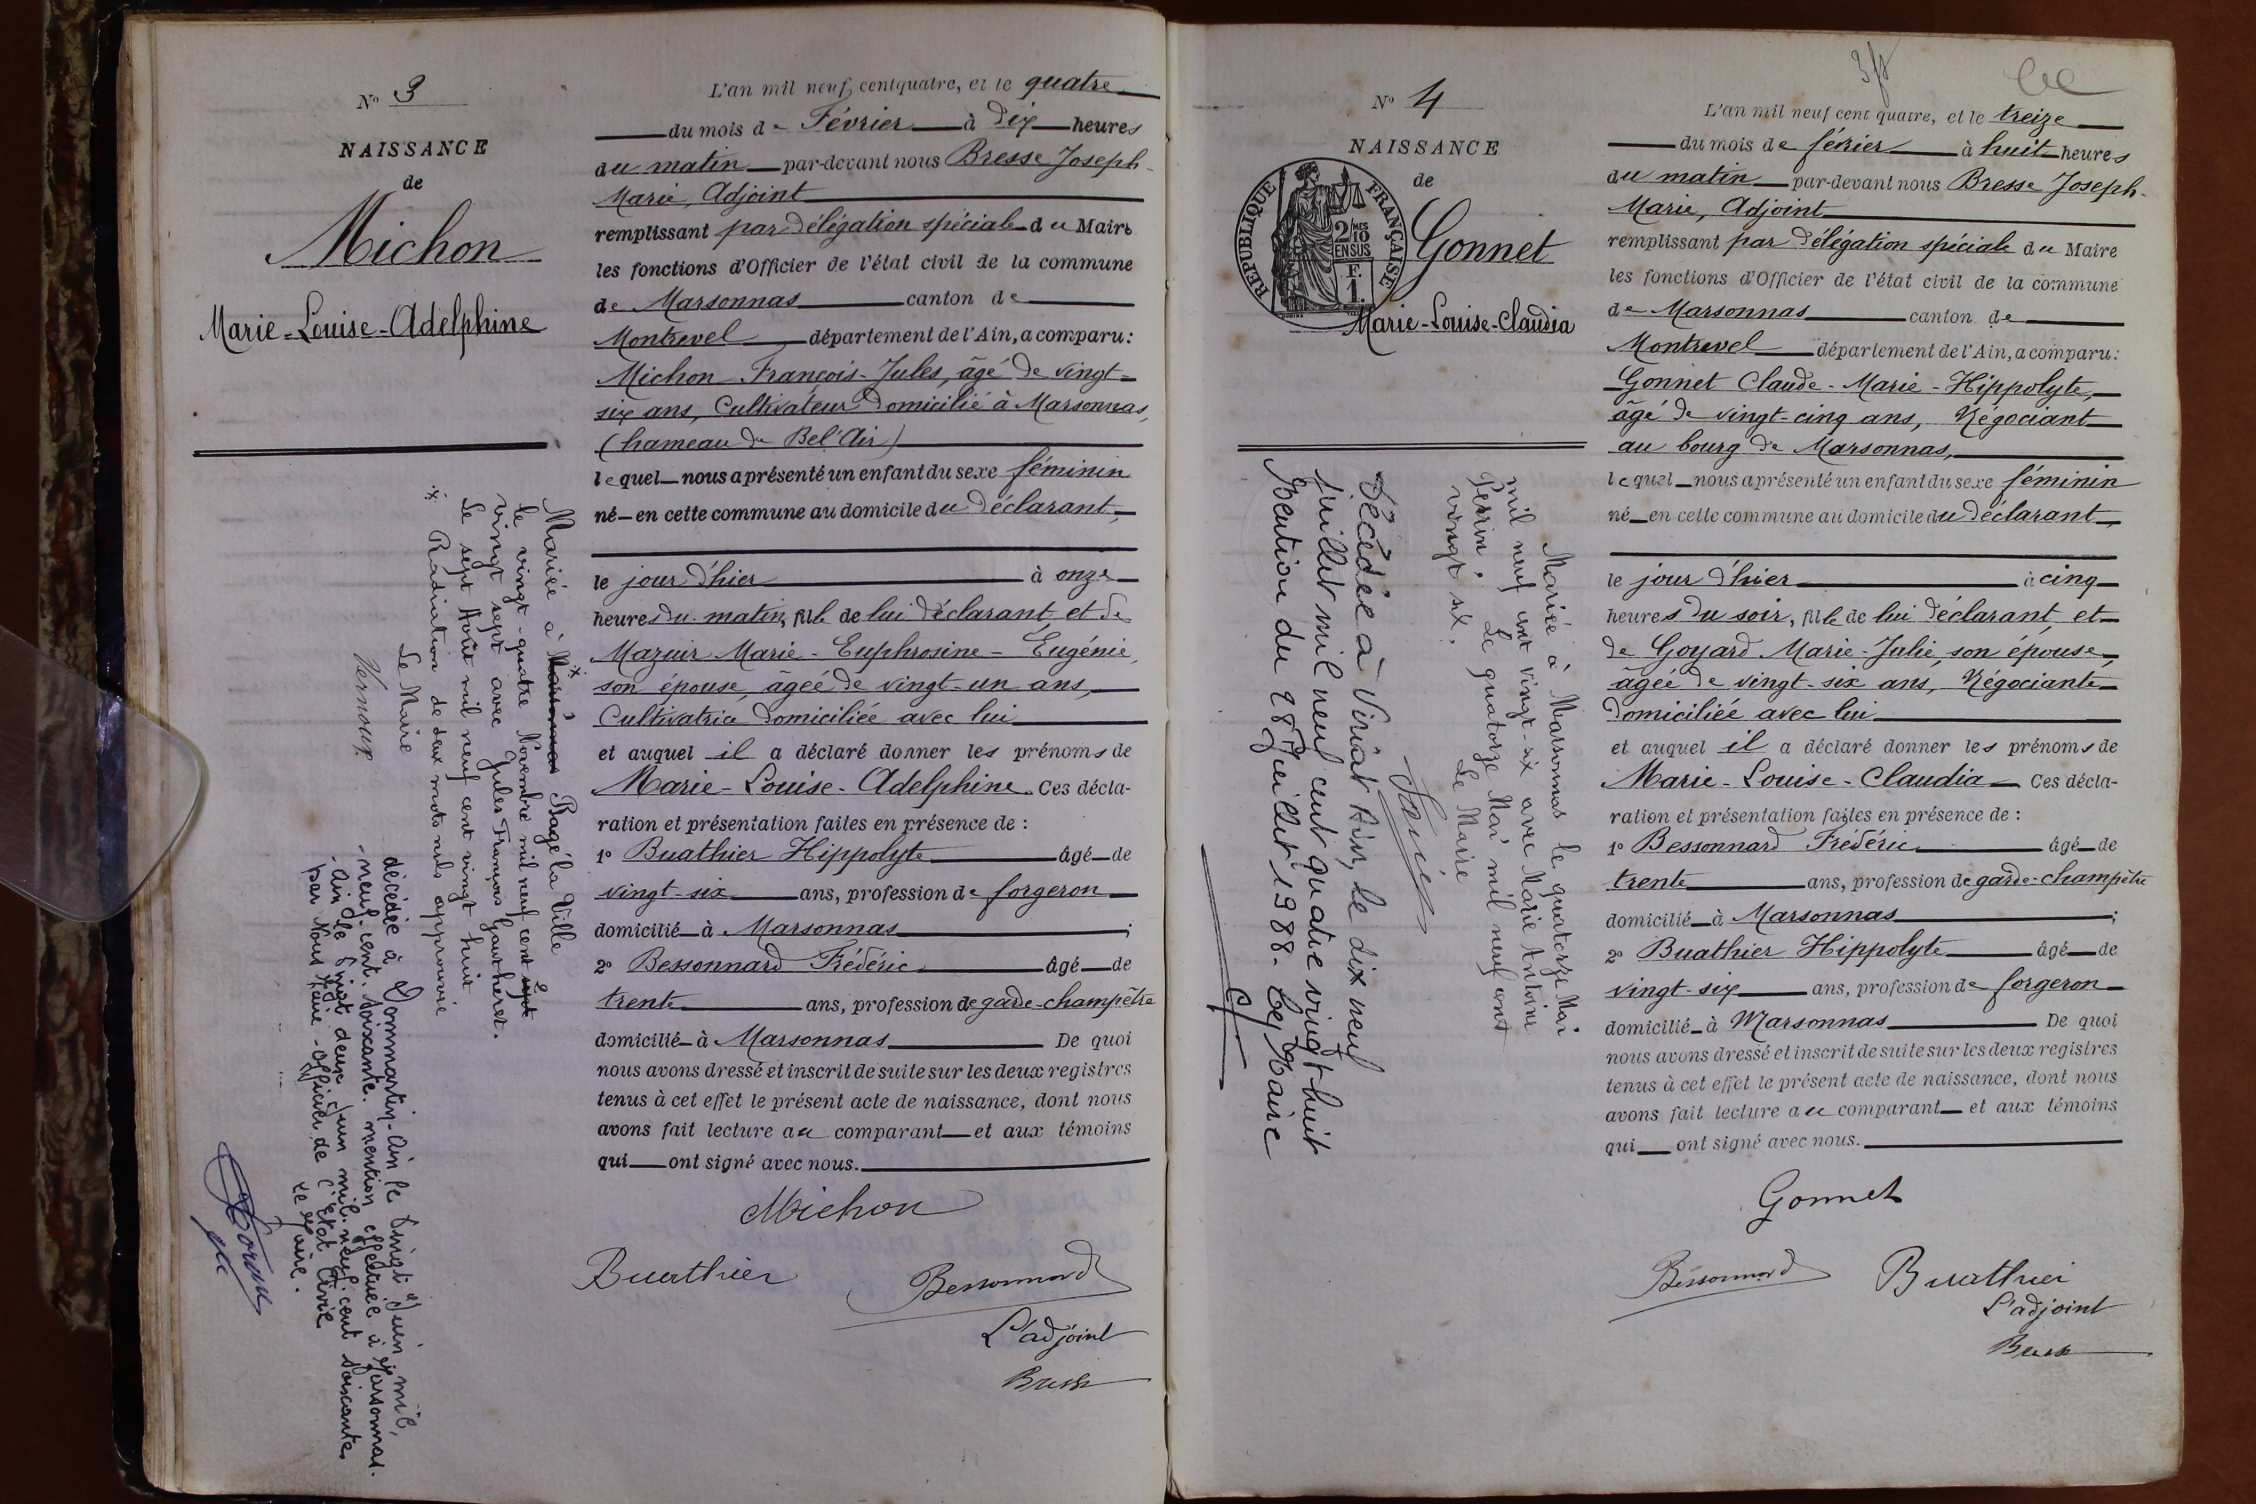 Nº 3
NAISSANCE
de
Michon
Marie-Louise-Adelphine
L'an mil neuf centquatre, et le quatre
du mois de Février à dix heures
du matin par-devant nous Bresse Joseph-
Marie, Adjoint
remplissant par délégation spéciale du Maire
les fonctions d'Officier de l'état civil de la commune
de Marsonnas canton de
Montrevel département de l'Ain, a comparu:
Michon François-Jules, âgé de vingt-
six ans, Cultivateur domicilié à Marsonnas,
(hameau du Bel'Air)
lequel nous a présenté un enfant du sexe féminin
né en cette commune au domicile du déclarant,
le jour d'hier à onze
heures du matin, fille de lui déclarant et de
Mazuir Marie-Euphrosine-Eugénie,
son épouse, âgée de vingt-un ans,
Cultivatrice domiciliée avec lui
et auquel il a déclaré donner les prénoms de
Marie-Louise-Adelphine. Ces décla-
ration et présentation faites en présence de :
1º Buathier Hippolyte âgé de
vingt-six ans, profession de forgeron
domicilié à Marsonnas ;
2º Bessonnard Frédéric âgé de
trente ans, profession de garde-champêtre
domicilié à Marsonnas De quoi
nous avons dressé et inscrit de suite sur les deux registres
tenus à cet effet le présent acte de naissance, dont nous
avons fait lecture au comparant et aux témoins
qui ont signé avec nous.
Michon
Buathier Bessonnard
L'adjoint
Bresse
Mariée à Marsonnas Bagé la Ville
le vingt-quatre Novembre mil neuf cent sept
vingt sept avec Jules François Gautheret.
Le sept Août mil neuf cent vingt huit
Radiation de deux mots nuls approuvée
Le Maire
Vernoux
décédée à Dommartin-Ain le vingt Juin mil
neuf-cent-soixante. mention effectuée à Marsonnas.
-Ain le vingt deux Juin mil-neuf-cent soixante
par Nous Maire-Officier de l'Etat Civil
Le Maire.
Nº 4
NAISSANCE
de
RÉPUBLIQUE FRANÇAISE
2/10 EN SUS
F. 1.
Gonnet
Marie-Louise-Claudia
L'an mil neuf cent quatre, et le treize
du mois de février à huit heures
du matin par-devant nous Bresse Joseph-
Marie, Adjoint
remplissant par délégation spéciale du Maire
les fonctions d'Officier de l'état civil de la commune
de Marsonnas canton de
Montrevel département de l'Ain, a comparu:
Gonnet Claude-Marie-Hippolyte,
âgé de vingt-cinq ans, Négociant
au bourg de Marsonnas,
lequel nous a présenté un enfant du sexe féminin
né en cette commune au domicile du déclarant,
le jour d'hier à cinq
heures du soir, fille de lui déclarant, et
de Goyard Marie-Julie, son épouse,
âgée de vingt-six ans, Négociante
domiciliée avec lui
et auquel il a déclaré donner les prénoms de
Marie-Louise-Claudia Ces décla-
ration et présentation faites en présence de :
1º Bessonnard Frédéric âgé de
trente ans, profession de garde-champêtre
domicilié à Marsonnas ;
2º Buathier Hippolyte âgé de
vingt-six ans, profession de forgeron
domicilié à Marsonnas De quoi
nous avons dressé et inscrit de suite sur les deux registres
tenus à cet effet le présent acte de naissance, dont nous
avons fait lecture au comparant et aux témoins
qui ont signé avec nous.
Gonnet
Bessonnard Buathier
L'adjoint
Bresse
Mariée à Marsonnas le quatorze Mai
mil neuf cent vingt-six avec Marie Antoine
Perrin. Le quatorze Mai mil neuf cent
vingt six. Le Maire
Décédée à Viriat Ain, le dix neuf
juillet mil neuf cent quatre vingt huit
Mention du 28 Juillet 1988. Le Maire